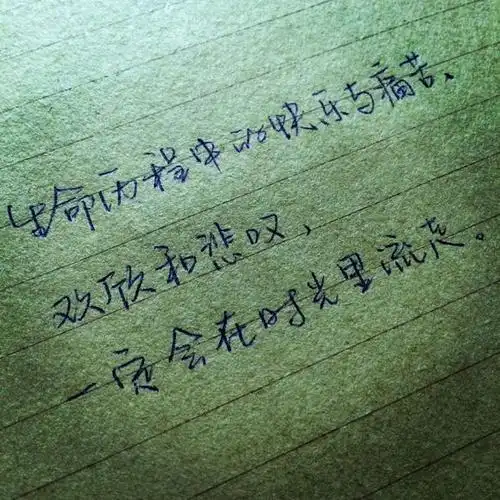 生命历程中的快乐与痛苦、
欢欣和悲叹，
一定会在时光里流走。